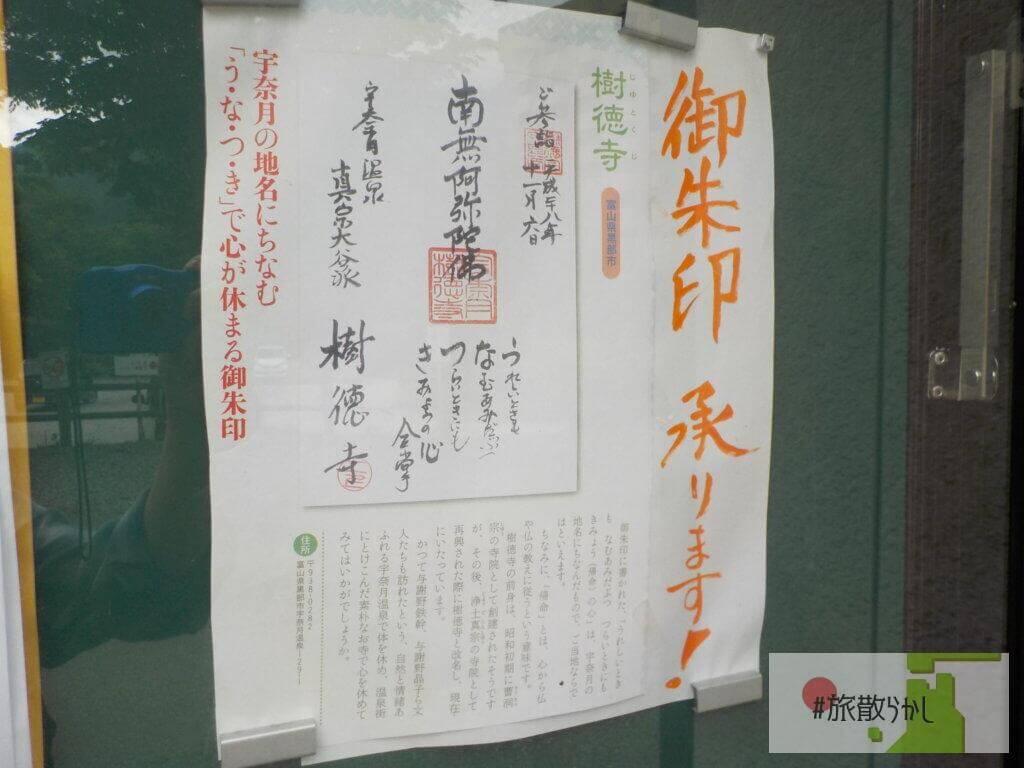 御朱印 承ります!
じゅとくじ
樹徳寺
富山県黒部市
ご参詣 平成二十八年
十一月六日
南無阿弥陀佛
宇奈月温泉
真宗大谷派
樹徳寺
うれしいときも
なむあみだぶつ
つらいときにも
きみょうの心
合掌
御朱印に書かれた、「うれしいとき
も なむあみだぶつ つらいときにも
きみょう(帰命)の心」は、宇奈月の
地名にちなんだもので、ご当地ならで
はといえます。
ちなみに、「帰命」とは、心から仏
や仏の教えに従うという意味です。
樹徳寺の前身は、昭和初期に曹洞
宗の寺院として創建されたそうです
が、その後、浄土真宗の寺院として
再興された際に樹徳寺と改名し、現在
にいたっています。
かつて与謝野鉄幹、与謝野晶子ら文
人たちも訪れたという、自然と情緒あ
ふれる宇奈月温泉で体を休め、温泉街
にとけこんだ素朴なお寺で心を休めて
みてはいかがでしょうか。
住所
〒938-0282
富山県黒部市宇奈月温泉129-1
宇奈月の地名にちなむ
「う・な・つ・き」で心が休まる御朱印
#旅散らかし